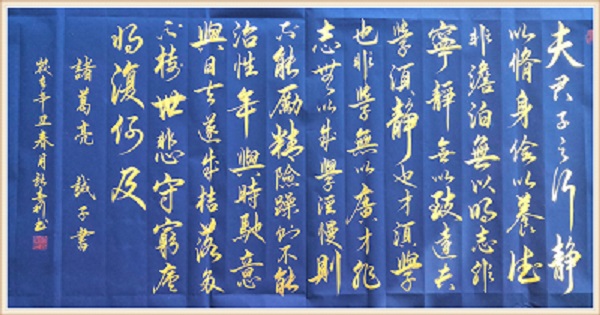 夫君子之行静
以脩身儉以養德
非澹泊無以明志非
寧静無以致遠夫
學須静也才須學
也非學無以廣才非
志無以成學淫慢則
不能勵精險躁則不能
治性年與時馳意
與日去遂成枯落多
不接世悲守窮廬
將復何及
諸葛亮 誡子書
歲在辛丑春月 書